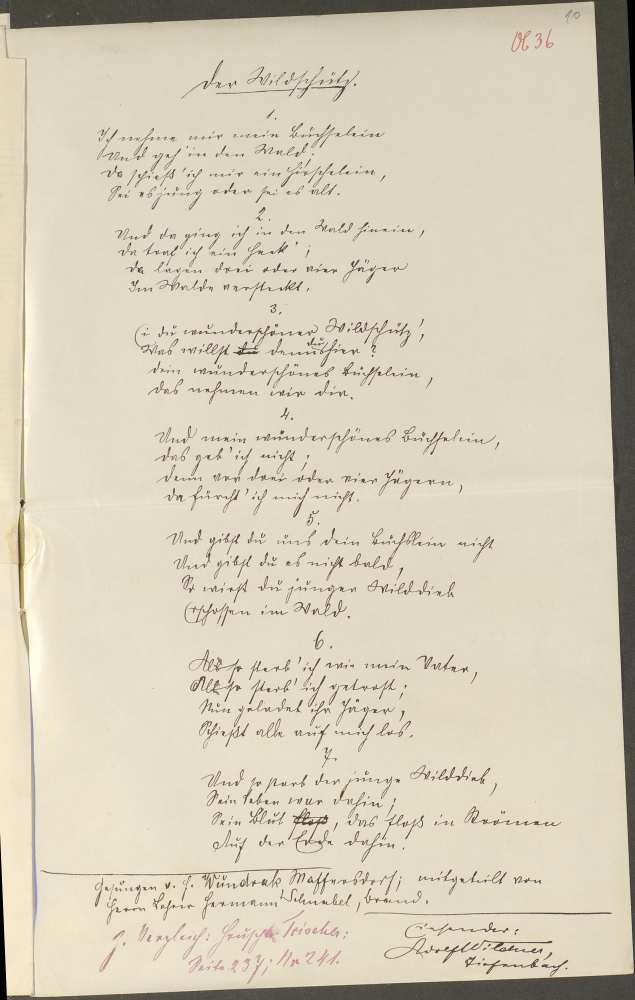 90
Ob 36
Der Wildschütz.
1.
Ich nehme mir mein Büchselein
Und geh' in den Wald;
Da schieß' ich mir ein Hirschelein,
Sei es jung oder sei es alt.
2.
Und da ging ich in den Wald hinein,
Da traf ich ein Heck';
Da lagen drei oder vier Jäger
Im Walde versteckt.
3.
Ei du wunderschöner Wildschütz',
Was willst du denn du hier?
Dein wunderschönes Büchselein,
Das nehmen wir dir.
4.
Und mein wunderschönes Büchselein,
Das geb' ich nicht;
Denn vor drei oder vier Jägern,
Da fürcht' ich mich nicht.
5.
Und gibst du uns dein Büchslein nicht
Und gibst du es nicht bald,
So wirst du junger Wilddieb
Erschossen im Wald.
6.
Also sterb' ich wie mein Vater,
Also sterb' ich getrost;
Nun geladet ihr Jäger,
Schießt alle auf mich los.
7.
Und so starb der junge Wilddieb,
Sein Leben war dahin;
Sein Blut floß, das floß in Strömen
Auf der Erde dahin.
Gesungen v. H. Wundrak Maffersdorf; mitgeteilt von
Herrn Lehrer Hermann Schnabel, Brand.
Einsender:
Adolf Wildner,
Tiefenbach.
Vergleich: Hruschka Toischer:
Seite 237; Nr 241.